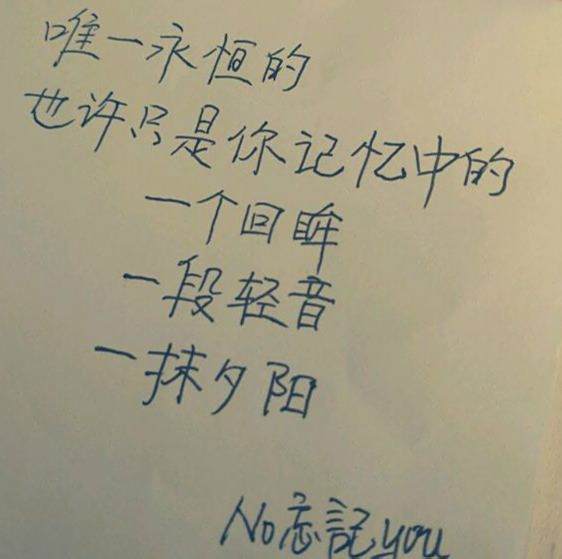 唯一永恒的
也许只是你记忆中的
一个回眸
一段轻音
一抹夕阳
No忘記you